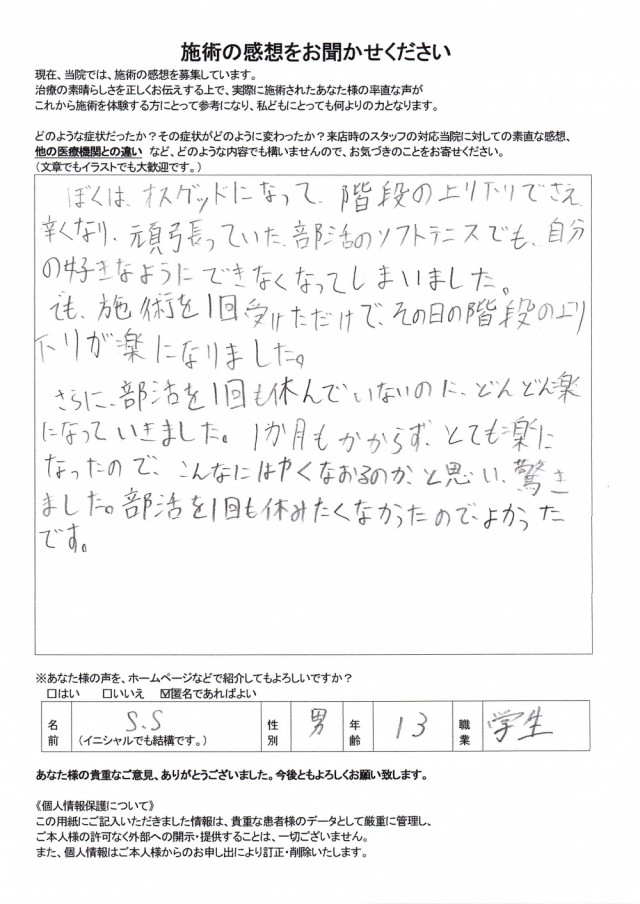 施術の感想をお聞かせください
現在、当院では、施術の感想を募集しています。
治療の素晴らしさを正しくお伝えする上で、実際に施術されたあなた様の率直な声が
これから施術を体験する方にとって参考になり、私どもにとっても何よりの力となります。
どのような症状だったか？その症状がどのように変わったか？来店時のスタッフの対応当院に対しての素直な感想、
他の医療機関との違い など、どのような内容でも構いませんので、お気づきのことをお寄せください。
（文章でもイラストでも大歓迎です。）
ぼくは、オスグッドになって、階段の上り下りでさえ
辛くなり、頑張っていた、部活のソフトテニスでも、自分
の好きなようにできなくなってしまいました。
でも、施術を1回受けただけで、その日の階段の上り
下りが楽になりました。
さらに、部活を1回も休んでいないのに、どんどん楽
になっていきました。1か月もかからず、とても楽に
なったので、こんなにはやくなおるのか、と思い、驚き
ました。部活を1回も休みたくなかったので、よかった
です。
※あなた様の声を、ホームページなどで紹介してもよろしいですか？
□はい □いいえ ☑匿名であればよい
名前 S.S （イニシャルでも結構です。） 性別 男 年齢 13 職業 学生
あなた様の貴重なご意見、ありがとうございました。今後ともよろしくお願い致します。
《個人情報保護について》
この用紙にご記入いただきました情報は、貴重な患者様のデータとして厳重に管理し、
ご本人様の許可なく外部への開示・提供することは、一切ございません。
また、個人情報はご本人様からのお申し出により訂正・削除いたします。